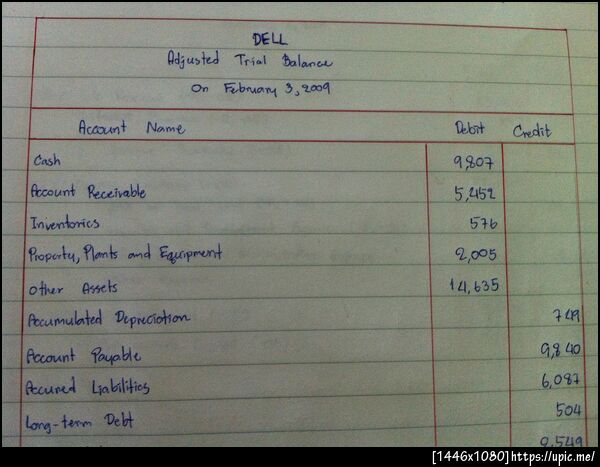 DELL
Adjusted Trial Balance
On February 3, 2009
Account Name Debit Credit
Cash 9,807
Account Receivable 5,452
Inventories 576
Property, Plants and Equipment 2,005
Other Assets 14,635
Accumulated Depreciation 749
Account Payable 9,840
Accured Liabilities 6,087
Long-term Debt 504
9,549
[1446x1080]https://upic.me/